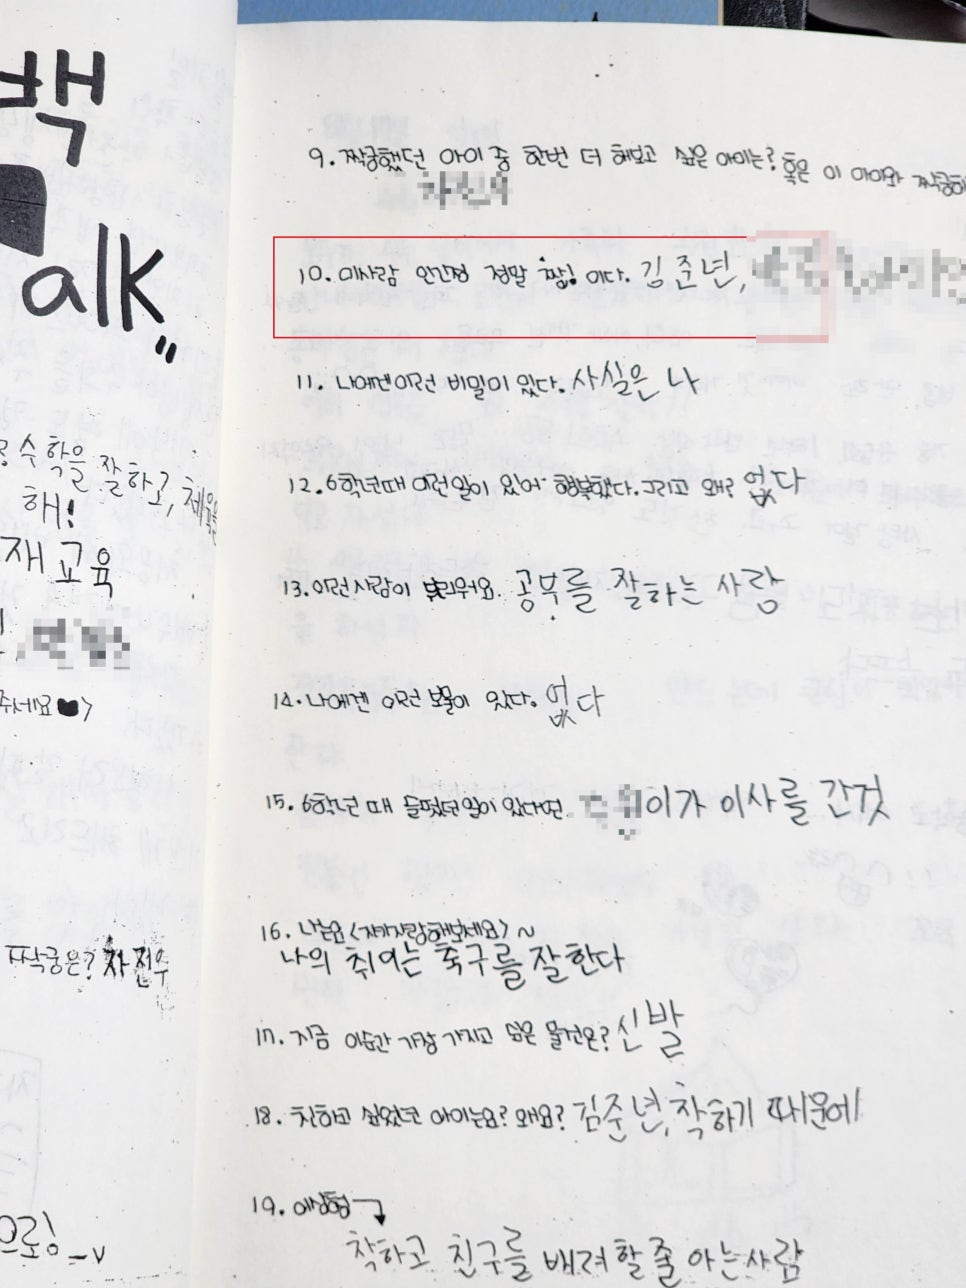 백
alk"
수학을 잘하고, 체육
해!
재 교육
주세요♥>
짝궁은? 차진우
으로! _v
9. 짝궁했던 아이 중 한번 더 해보고 싶은 아이는? 혹은 이 아이와 짝궁해
10. 이사람 인간성 정말 "짱"! 이다. 김준년,
11. 나에겐 이런 비밀이 있다. 사실은 나
12. 6학년때 이런일이 있어 행복했다. 그리고 왜? 없다
13. 이런 사람이 부러워요. 공부를 잘하는 사람
14. 나에겐 이런 보물이 있다. 없다
15. 6학년 때 슬펐던 일이 있다면 이가 이사를 간것
16. 나는요 <자기자랑해보세요> ~
나의 취미는 축구를 잘한다
17. 지금 이순간 가장 가지고 싶은 물건은? 신발
18. 친하고 싶었던 아이는요? 왜요? 김준년, 착하기 때문에
19. 이상형
착하고 친구를 배려할 줄 아는 사람